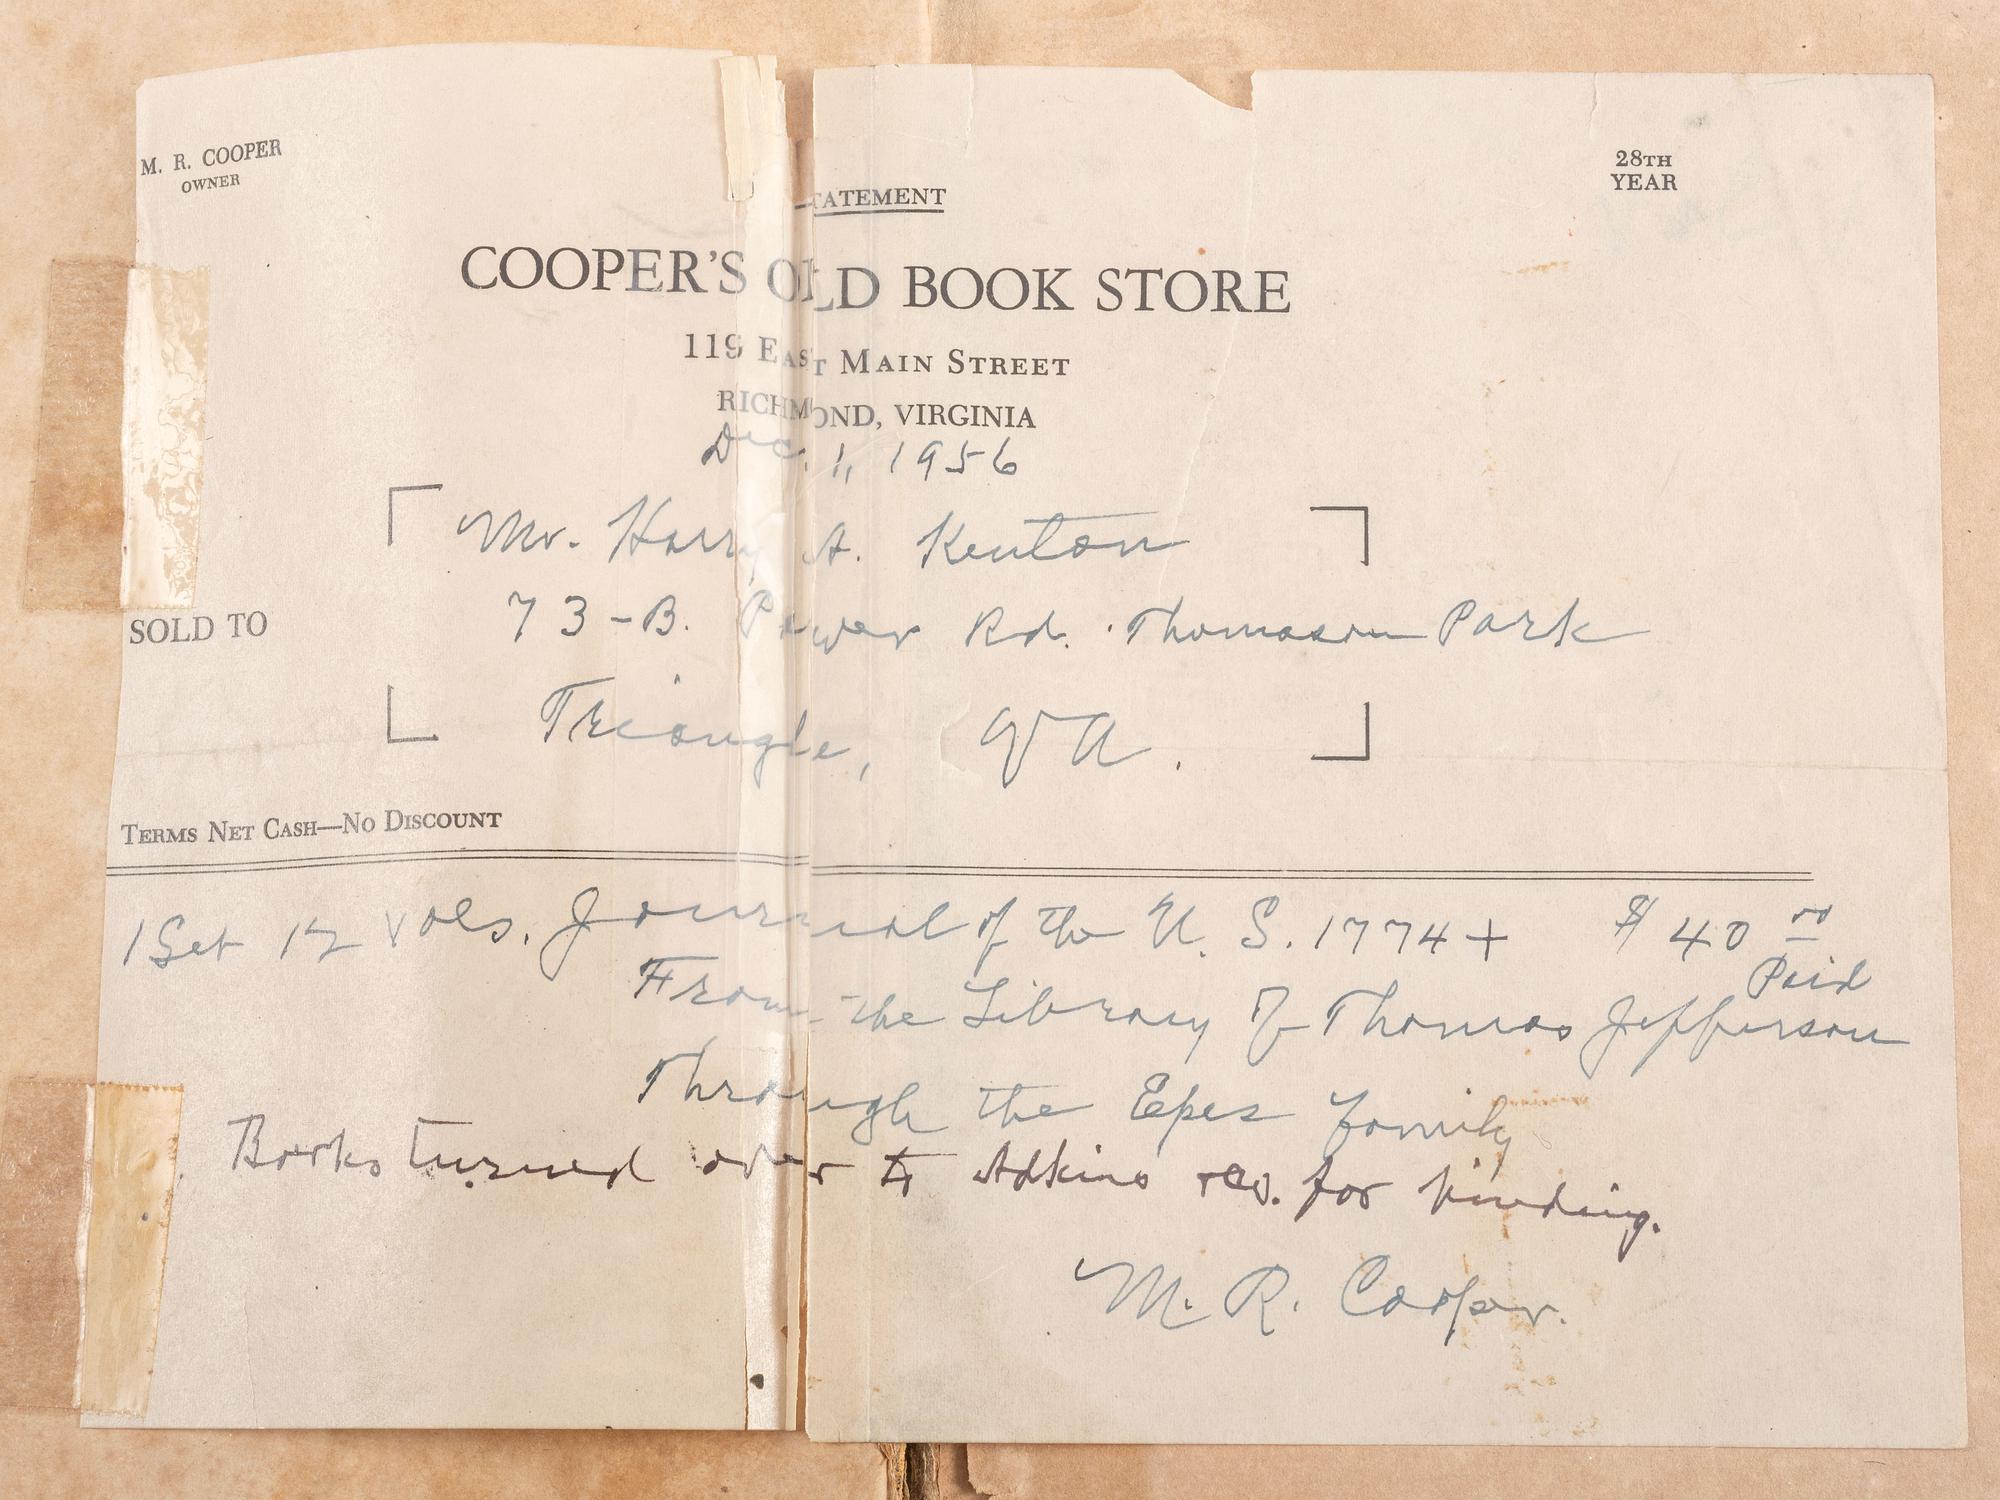 M. R. COOPER
OWNER
28TH
YEAR
TATEMENT
COOPER'S OLD BOOK STORE
119 EAST MAIN STREET
RICHMOND, VIRGINIA
Dec. 1, 1956
Mr. Harry A. Kenton
SOLD TO
73-B. Power Rd. Thomason Park
Triangle, VA.
TERMS NET CASH—NO DISCOUNT
1 Set 12 Vols. Journal of the U. S. 1774+ $40 00
Paid
From the Library of Thomas Jefferson
Through the Epes family
Books turned over to Adkins for binding.
M. R. Cooper.